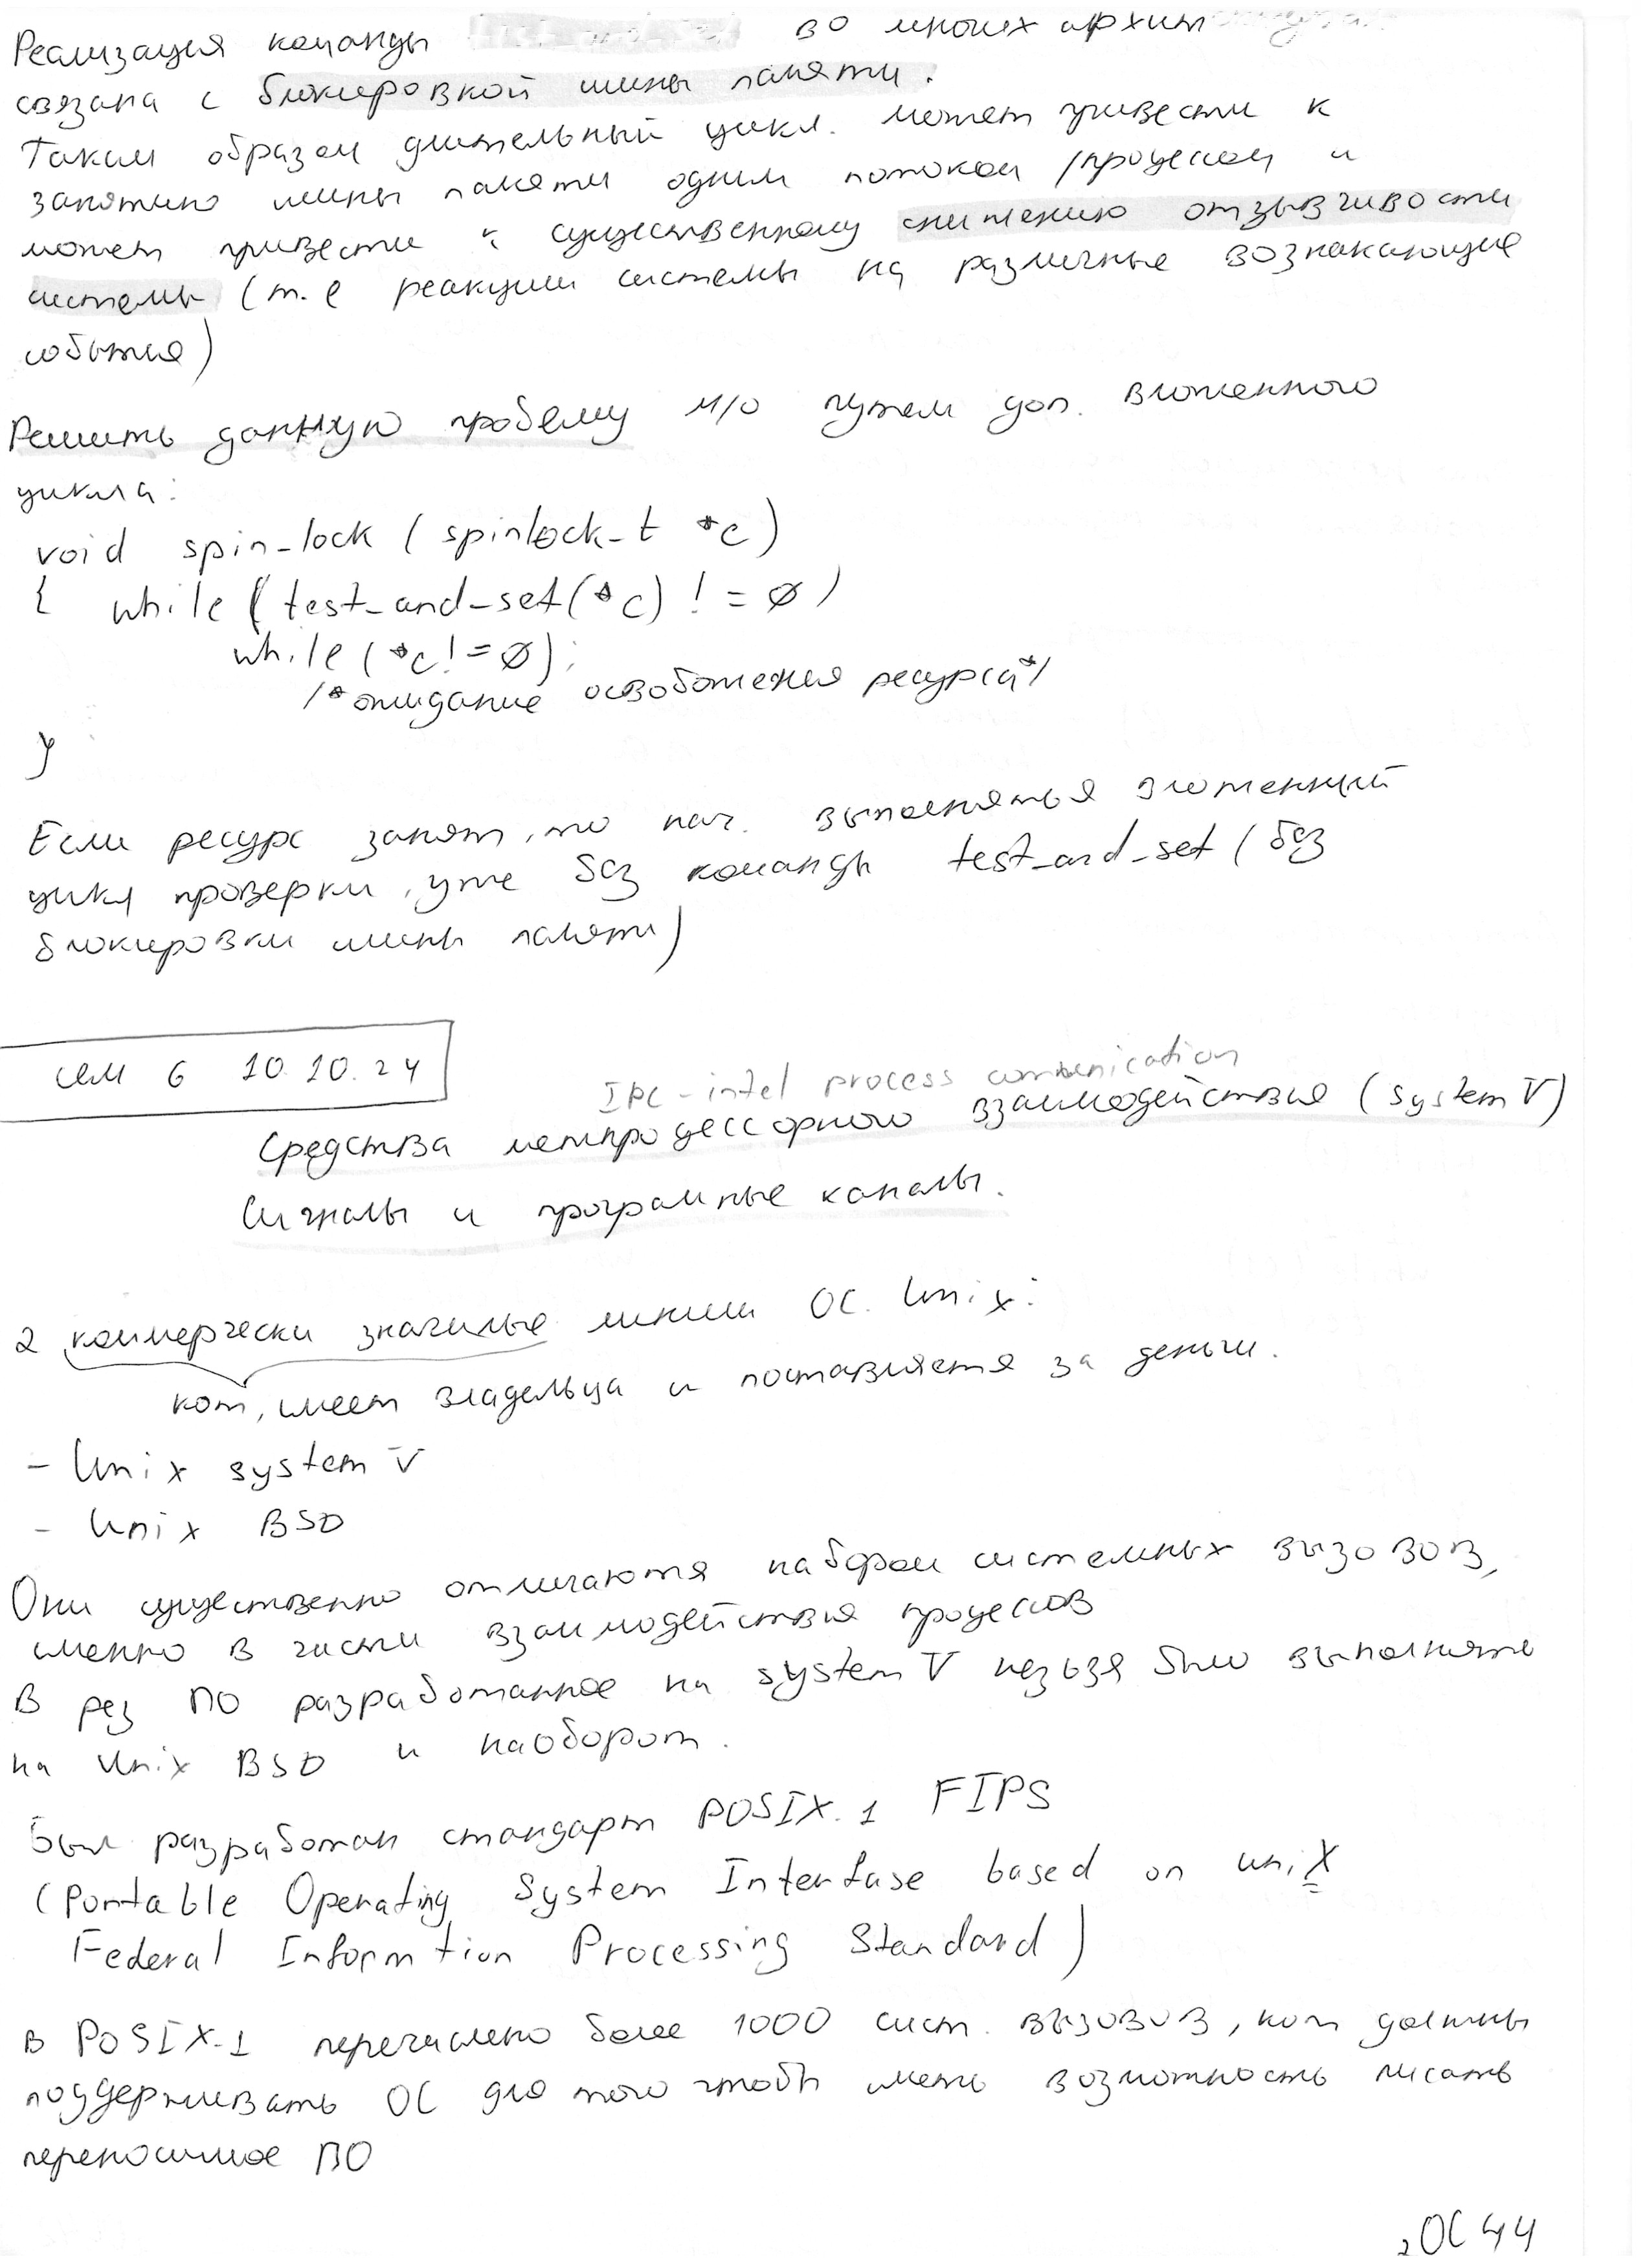 Реализация команды во многих архит
связана с блокировкой шины памяти.
Таким образом длительный цикл. может привести к
занятию шины памяти одним потоком /процессом и
может привести к существенному снижению отзывчивости
системы (т.е реакции системы на различные возникающие
события)
Решить данную проблему м/о путем доп. вложенного
цикла:
void spin_lock ( spinlock_t *c)
{ while ( test_and_set(*c) != 0 )
while ( *c != 0);
/* ожидание освобождения ресурса */
}
Если ресурс занят, то нач. выполняться вложенный
цикл проверки, уже без команды test_and_set ( без
блокировки шины памяти)
сем 6 10.10.24
IPC - intel process communication
Средства межпроцессорного взаимодействия (system V)
Сигналы и програмные каналы.
2 коммерчески значимые линии ОС. Unix:
кот, имеет владельца и поставляется за деньги.
- Unix system V
- Unix BSD
Они существенно отличаются набором системных вызовов,
именно в части взаимодействия процессов
В рез ПО разработанное на system V незьзя было выполнять
на Unix BSD и наоборот.
Был разработан стандарт POSIX.1 FIPS
(Portable Operating System Interfase based on uniX
Federal Informtion Processing Standard)
В POSIX.1 перечислено более 1000 сист. вызовов, кот должны
поддерживать ОС для того чтобы иметь возможность писать
переносимое ПО
2 ОС 44